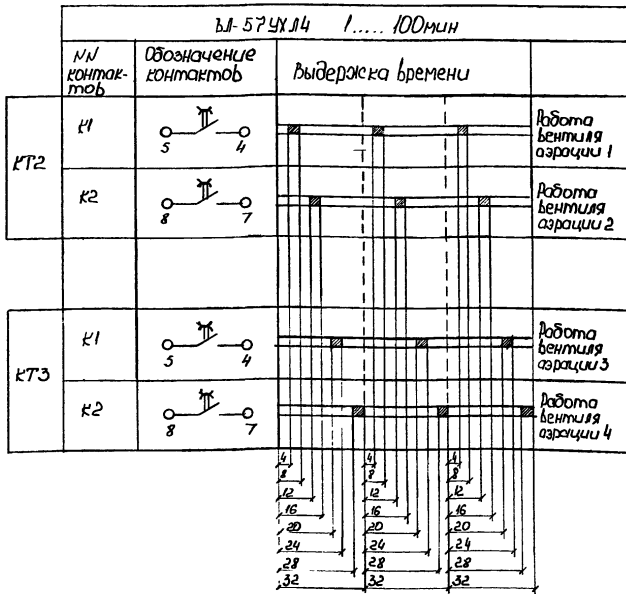 ВЛ-57УХЛ4 1..... 100мин
NN контак-
тов
Обозначение
контактов
Выдержка времени
КТ2
К1
5 4
Работа
вентиля
аэрации 1
К2
8 7
Работа
вентиля
аэрации 2
КТ3
К1
5 4
Работа
вентиля
аэрации 3
К2
8 7
Работа
вентиля
аэрации 4
4 4 4
8 8 8
12 12 12
16 16 16
20 20 20
24 24 24
28 28 28
32 32 32